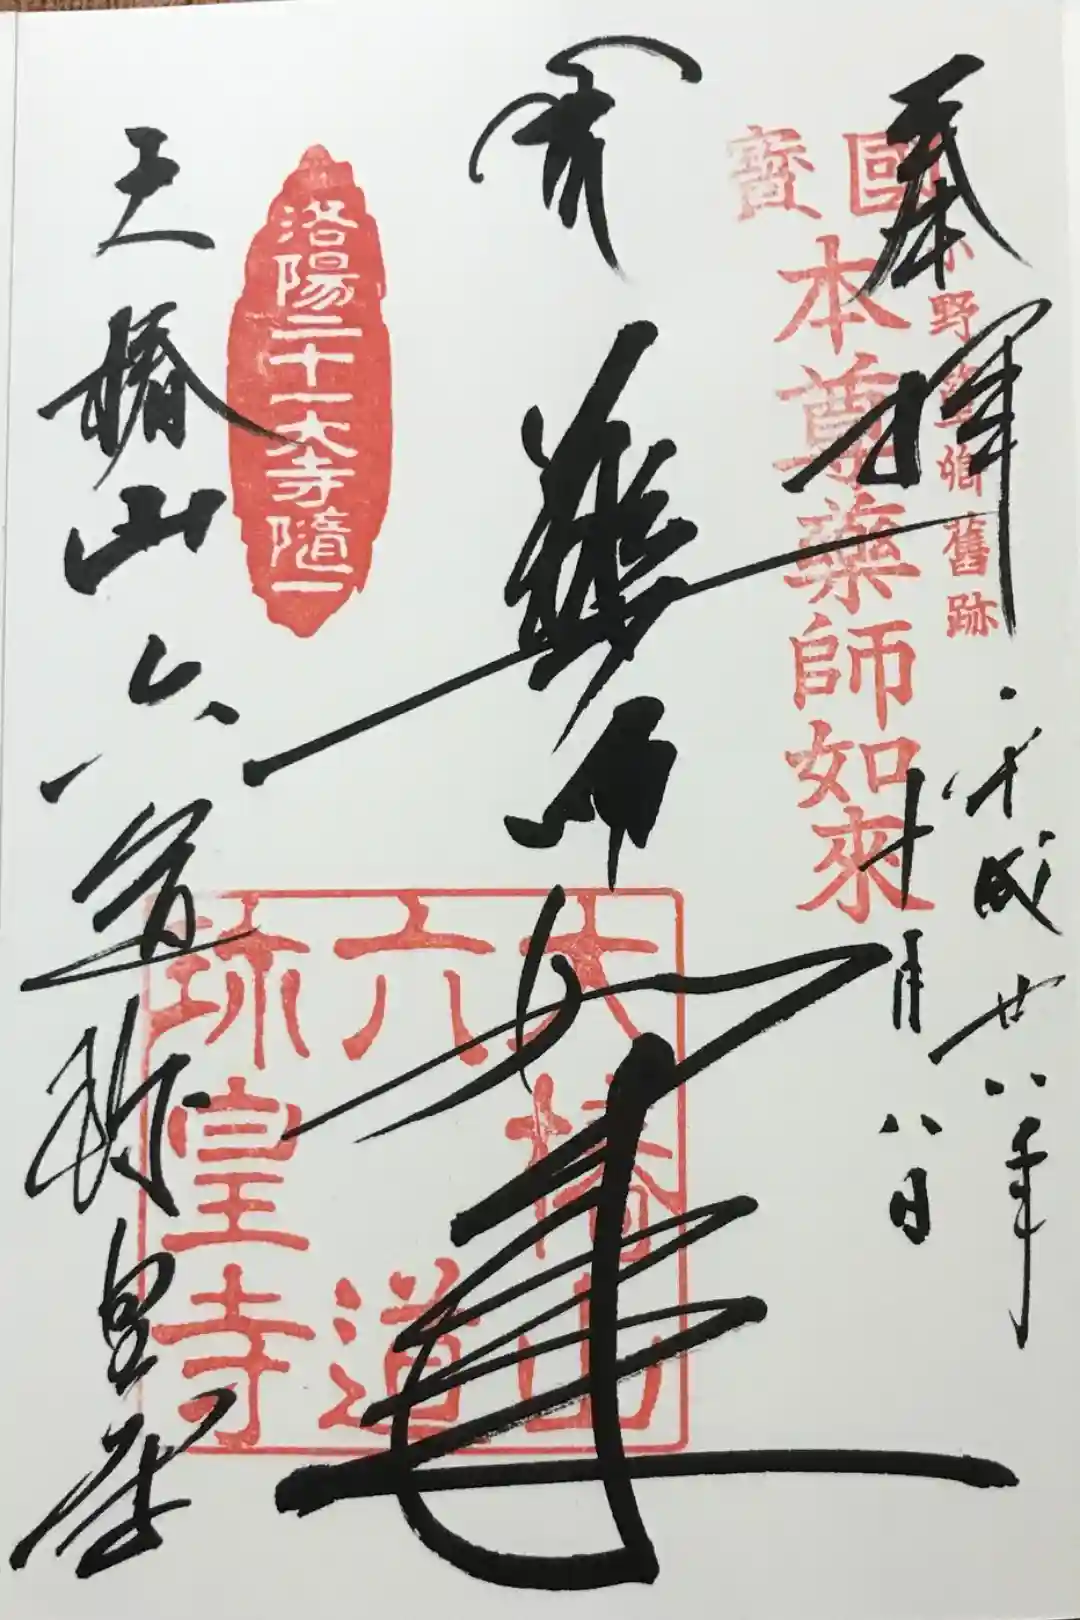 奉拝
平成廿八年
十月八日
小野篁卿舊跡
國寶
本尊藥師如來
藥師如来
洛陽二十一大寺隨一
大椿山
六道
珎皇寺
大椿山六道珎皇寺